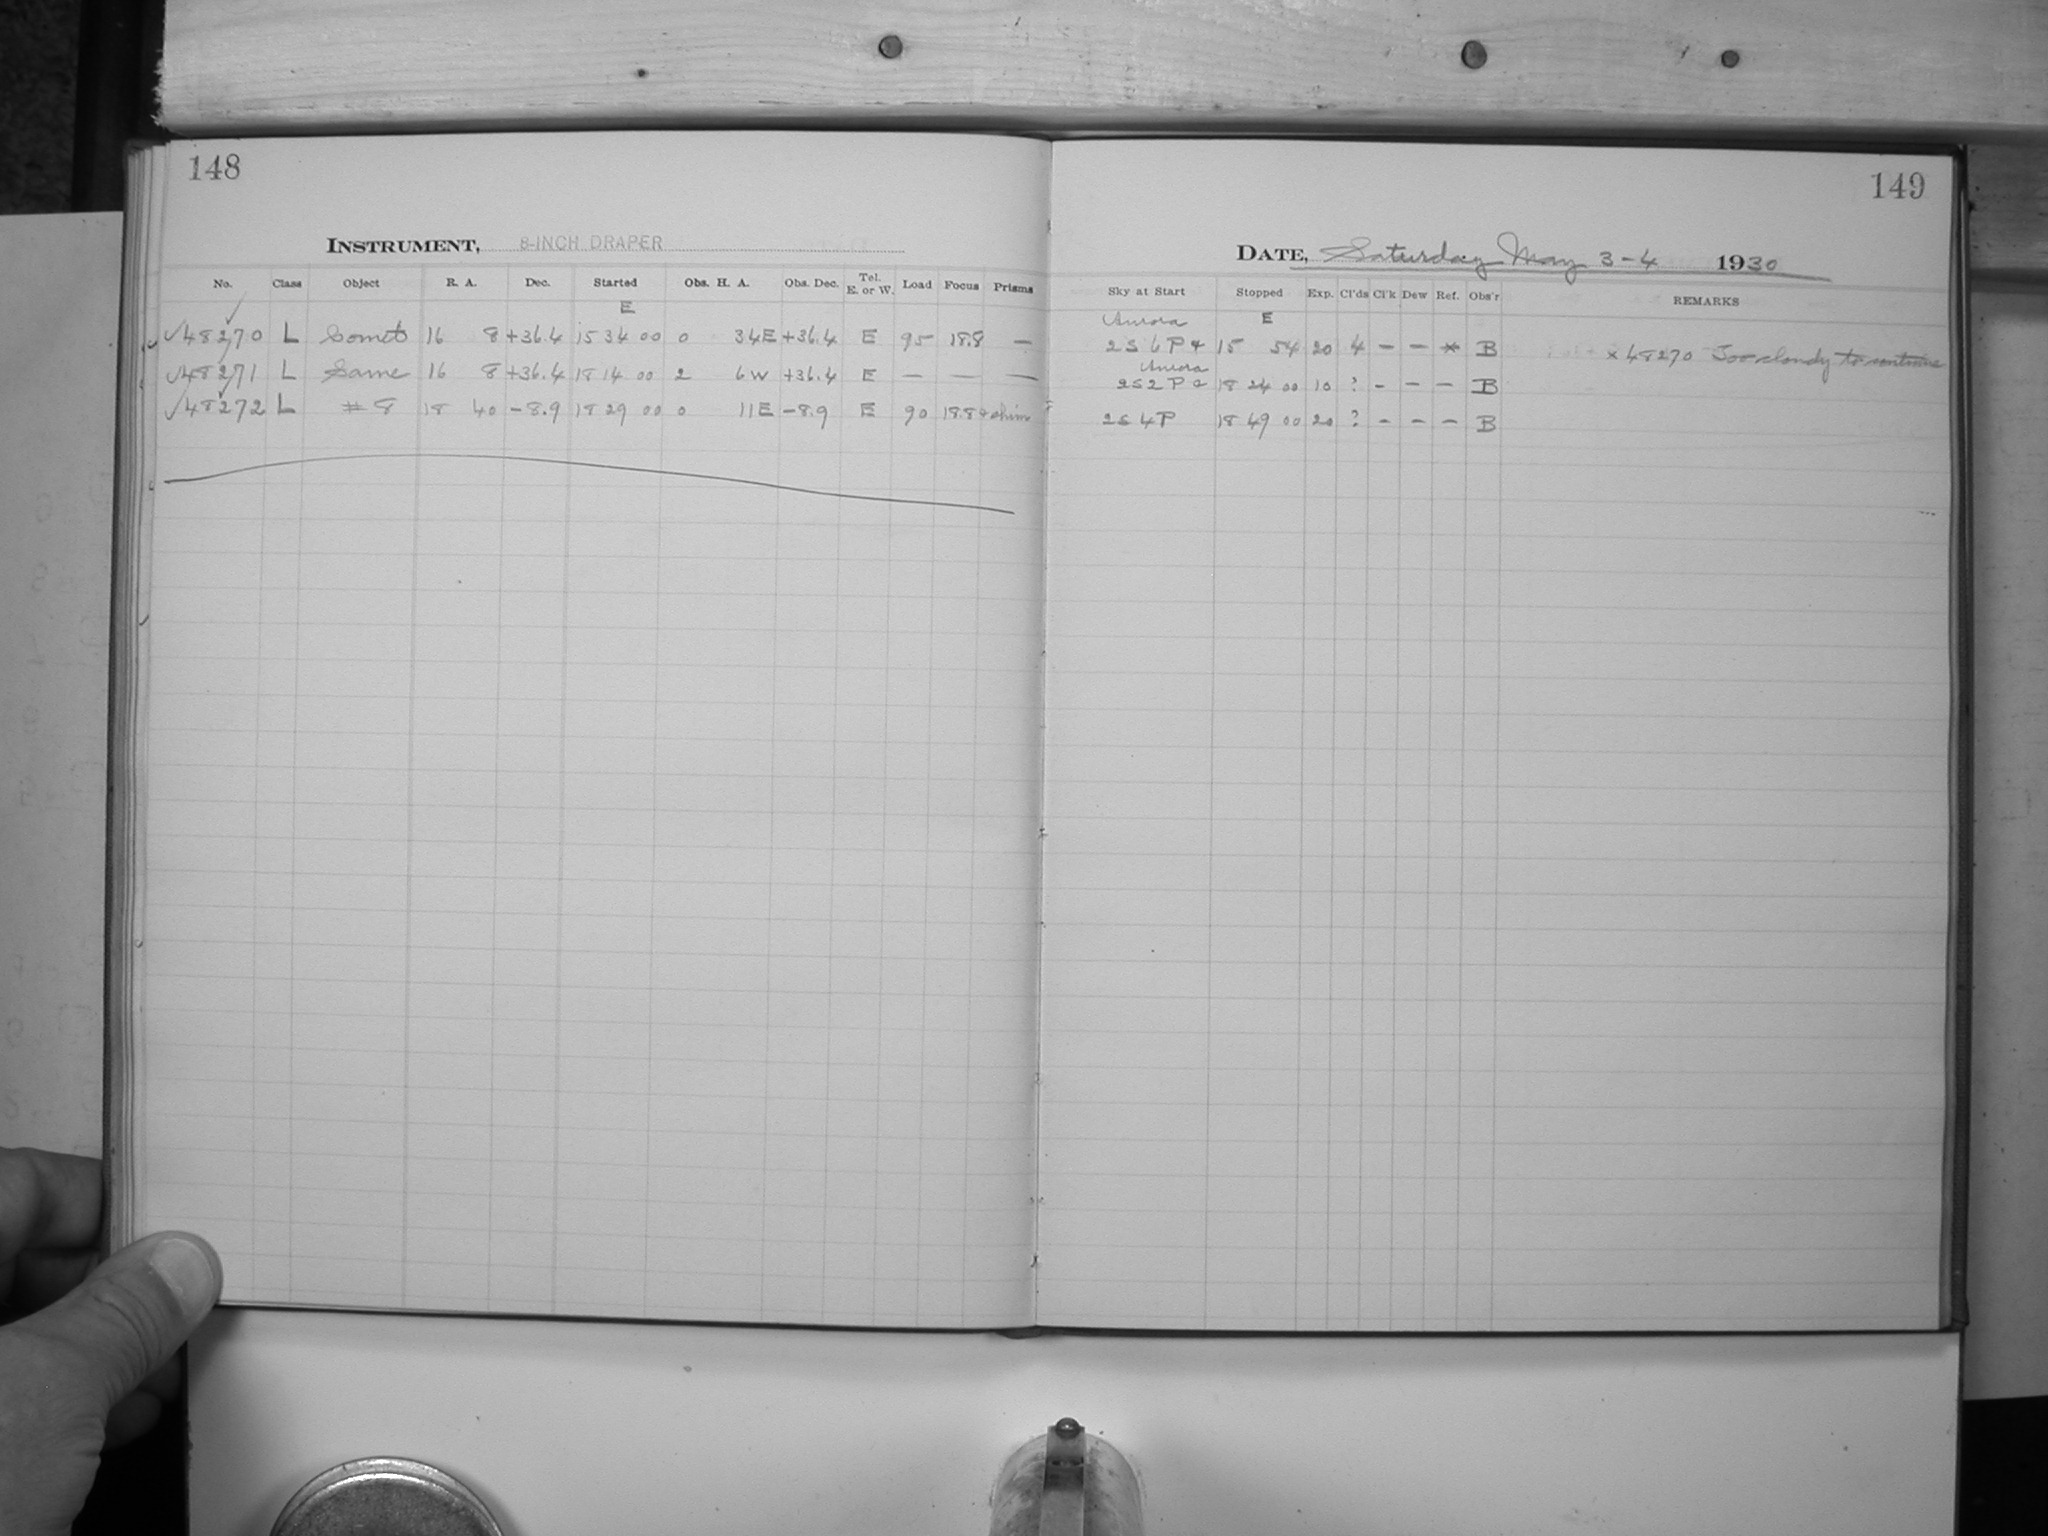 148
INSTRUMENT, 8-INCH DRAPER
No. Class Object R. A. Dec. Started Obs. H. A. Obs. Dec. Tel. E. or W. Load Focus Prisms
E
✓48270 L Comet 16 8 +36.4 15 34 00 0 34E +36.4 E 95 18.8 —
✓48271 L Same 16 8 +36.4 18 14 00 2 6W +36.4 E — — —
✓48272 L #8 18 40 -8.9 18 29 00 0 11E -8.9 E 90 18.8
149
DATE, Saturday May 3-4 1930
Sky at Start Stopped Exp. Cl'ds Cl'k Dew Ref. Obs'r REMARKS
Aurora E
2S 6 P 15 54 20 4 — — * B × 48270 Too cloudy to continue
Aurora
2S 2 P 18 24 00 10 ? - — — B
2S 4 P 18 49 00 20 ? - — — B